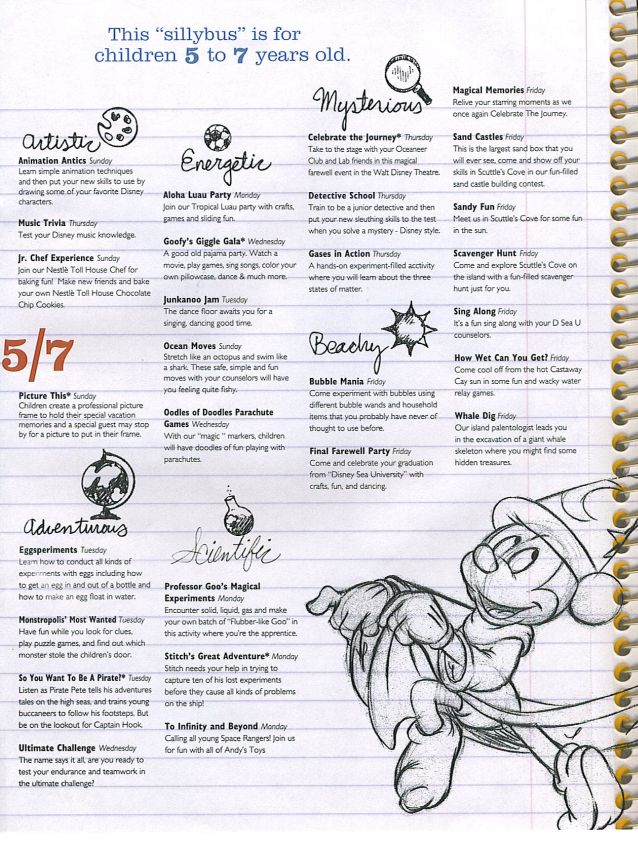 This "sillybus" is for
children 5 to 7 years old.
Artistic
Animation Antics Sunday
Learn simple animation techniques
and then put your new skills to use by
drawing some of your favorite Disney
characters.
Music Trivia Thursday
Test your Disney music knowledge.
Jr. Chef Experience Sunday
Join our Nestlè Toll House Chef for
baking fun! Make new friends and bake
your own Nestlè Toll House Chocolate
Chip Cookies.
5/7
Picture This* Sunday
Children create a professional picture
frame to hold their special vacation
memories and a special guest may stop
by for a picture to put in their frame.
Adventurous
Eggsperiments Tuesday
Learn how to conduct all kinds of
experiments with eggs including how
to get an egg in and out of a bottle and
how to make an egg float in water.
Monstropolis' Most Wanted Tuesday
Have fun while you look for clues,
play puzzle games, and find out which
monster stole the children's door.
So You Want To Be A Pirate?* Tuesday
Listen as Pirate Pete tells his adventures
tales on the high seas, and trains young
buccaneers to follow his footsteps. But
be on the lookout for Captain Hook.
Ultimate Challenge Wednesday
The name says it all, are you ready to
test your endurance and teamwork in
the ultimate challenge?
Energetic
Aloha Luau Party Monday
Join our Tropical Luau party with crafts,
games and sliding fun.
Goofy's Giggle Gala* Wednesday
A good old pajama party. Watch a
movie, play games, sing songs, color your
own pillowcase, dance & much more.
Junkanoo Jam Tuesday
The dance floor awaits you for a
singing, dancing good time.
Ocean Moves Sunday
Stretch like an octopus and swim like
a shark. These safe, simple and fun
moves with your counselors will have
you feeling quite fishy.
Oodles of Doodles Parachute
Games Wednesday
With our "magic " markers, children
will have doodles of fun playing with
parachutes.
Scientific
Professor Goo's Magical
Experiments Monday
Encounter solid, liquid, gas and make
your own batch of "Flubber-like Goo" in
this activity where you're the apprentice.
Stitch's Great Adventure* Monday
Stitch needs your help in trying to
capture ten of his lost experiments
before they cause all kinds of problems
on the ship!
To Infinity and Beyond Monday
Calling all young Space Rangers! Join us
for fun with all of Andy's Toys
Mysterious
Celebrate the Journey* Thursday
Take to the stage with your Oceaneer
Club and Lab friends in this magical
farewell event in the Walt Disney Theatre.
Detective School Thursday
Train to be a junior detective and then
put your new sleuthing skills to the test
when you solve a mystery - Disney style.
Gases in Action Thursday
A hands-on experiment-filled acctivity
where you will learn about the three
states of matter.
Beachy
Bubble Mania Friday
Come experiment with bubbles using
different bubble wands and household
items that you probably have never of
thought to use before.
Final Farewell Party Friday
Come and celebrate your graduation
from "Disney Sea University" with
crafts, fun, and dancing.
Magical Memories Friday
Relive your starring moments as we
once again Celebrate The Journey.
Sand Castles Friday
This is the largest sand box that you
will ever see, come and show off your
skills in Scuttle's Cove in our fun-filled
sand castle building contest.
Sandy Fun Friday
Meet us in Scuttle's Cove for some fun
in the sun.
Scavenger Hunt Friday
Come and explore Scuttle's Cove on
the island with a fun-filled scavenger
hunt just for you.
Sing Along Friday
It's a fun sing along with your D Sea U
counselors.
How Wet Can You Get? Friday
Come cool off from the hot Castaway
Cay sun in some fun and wacky water
relay games.
Whale Dig Friday
Our island palentologist leads you
in the excavation of a giant whale
skeleton where you might find some
hidden treasures.